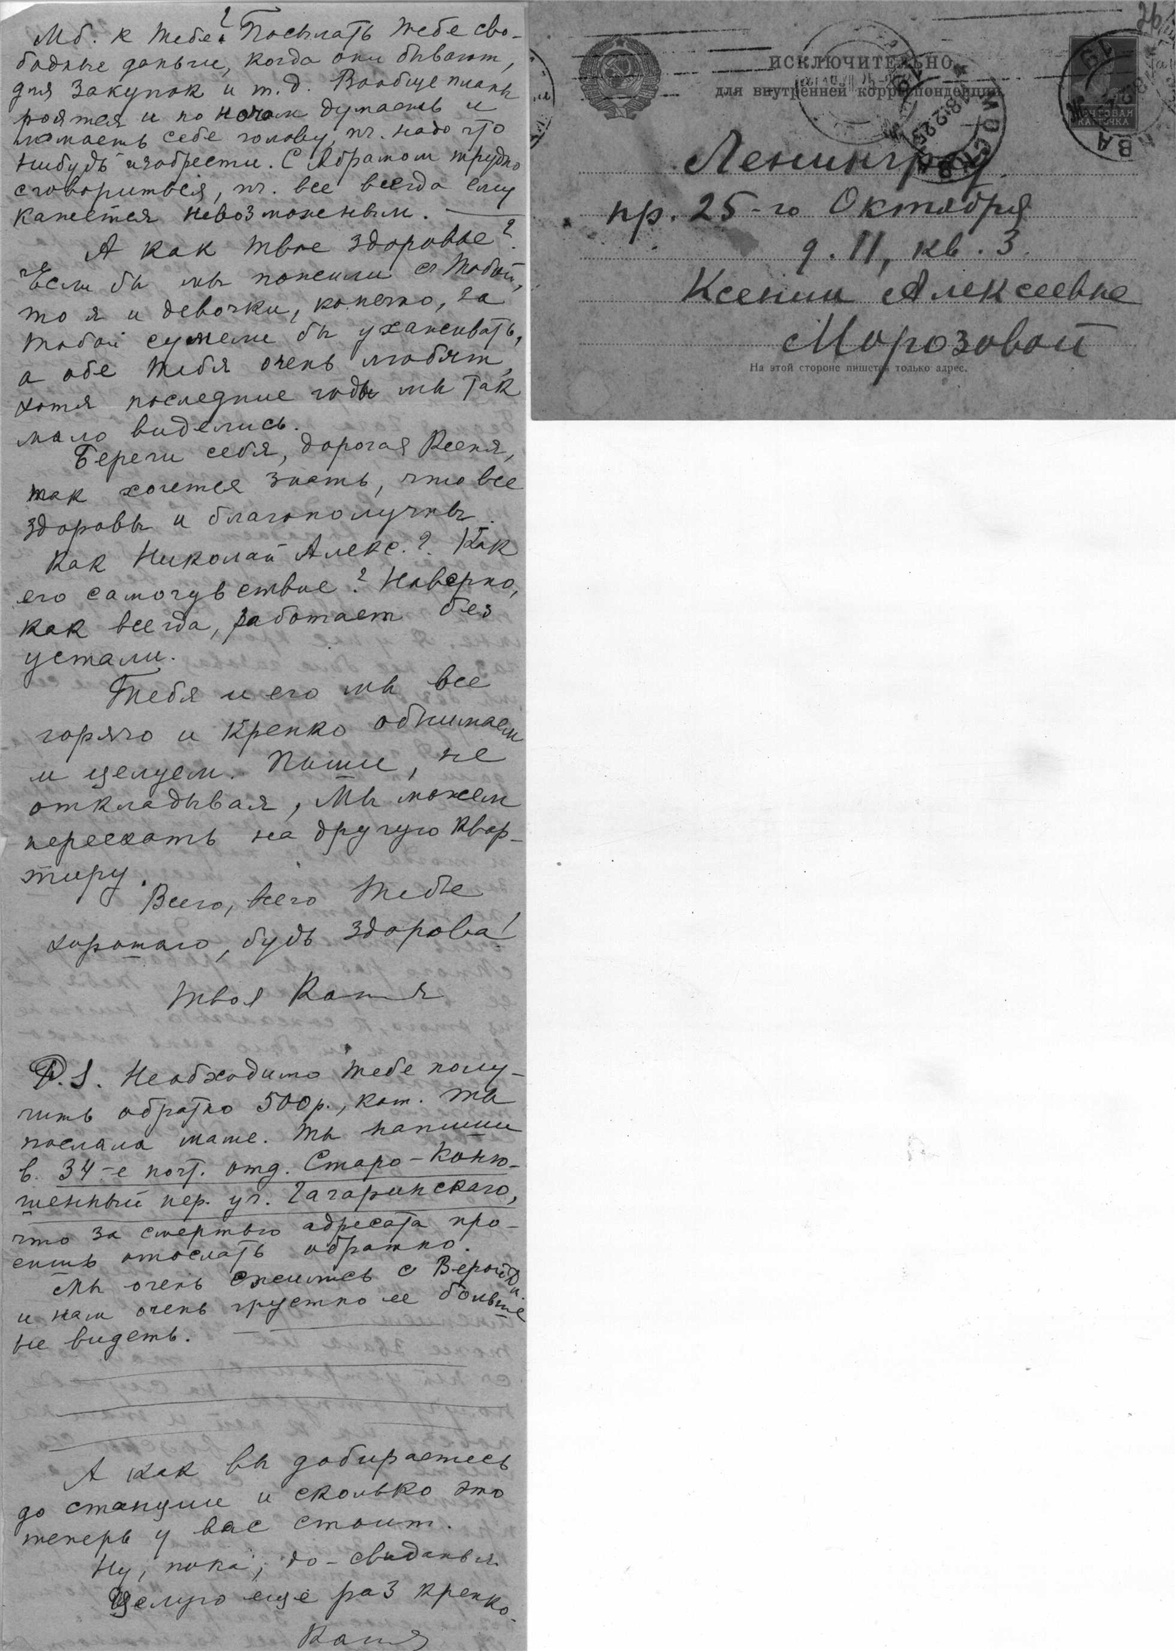 Мб. к тебе? Посылать тебе сво-
бодные деньги, когда они бывают,
для закупок и т.д. Вообще планы
роятся и по ночам думаешь и
ломаешь себе голову, пч. надо что
нибудь изобрести. С Абрамом трудно
сговориться, пч. все всегда ему
кажется невозможным.
А как твое здоровье?
Если бы мы пожили с тобой,
то я и девочки, конечно, за
тобой сумели бы ухаживать,
а обе тебя очень любят,
хотя последние годы мы так
мало виделись.
Береги себя, дорогая Ксеня,
так хочется знать, что все
здоровы и благополучны.
Как Николай Алекс.? Как
его самочувствие? Наверно,
как всегда, работает без
устали.
Тебя и его мы все
горячо и крепко обнимаем
и целуем. Пиши, не
откладывая, мы можем
переехать на другую квар-
тиру.
Всего, всего тебе
хорошаго, будь здорова!
Твоя Катя
P.S. Необходимо тебе полу-
чить обратно 500р., кот. ты
послала маме. Ты напиши
в 34-е почт. отд. Старо-Коню-
шенный пер. уг. Гагаринскаго,
что за смертью адресата про-
сишь отослать обратно.
Мы очень сжились с Верой
и нам очень грустно ее больше
не видеть.
А как вы добираетесь
до станции и сколько это
теперь у вас стоит.
Ну, пока, до-свиданья.
Целую еще раз крепко.
Катя
ИСКЛЮЧИТЕЛЬНО
для внутренней корреспонденции
МОСКВА
Ленинград
пр. 25-го Октября
д. 11, кв. 3.
Ксении Алексеевне
Морозовой
На этой стороне пишется только адрес.